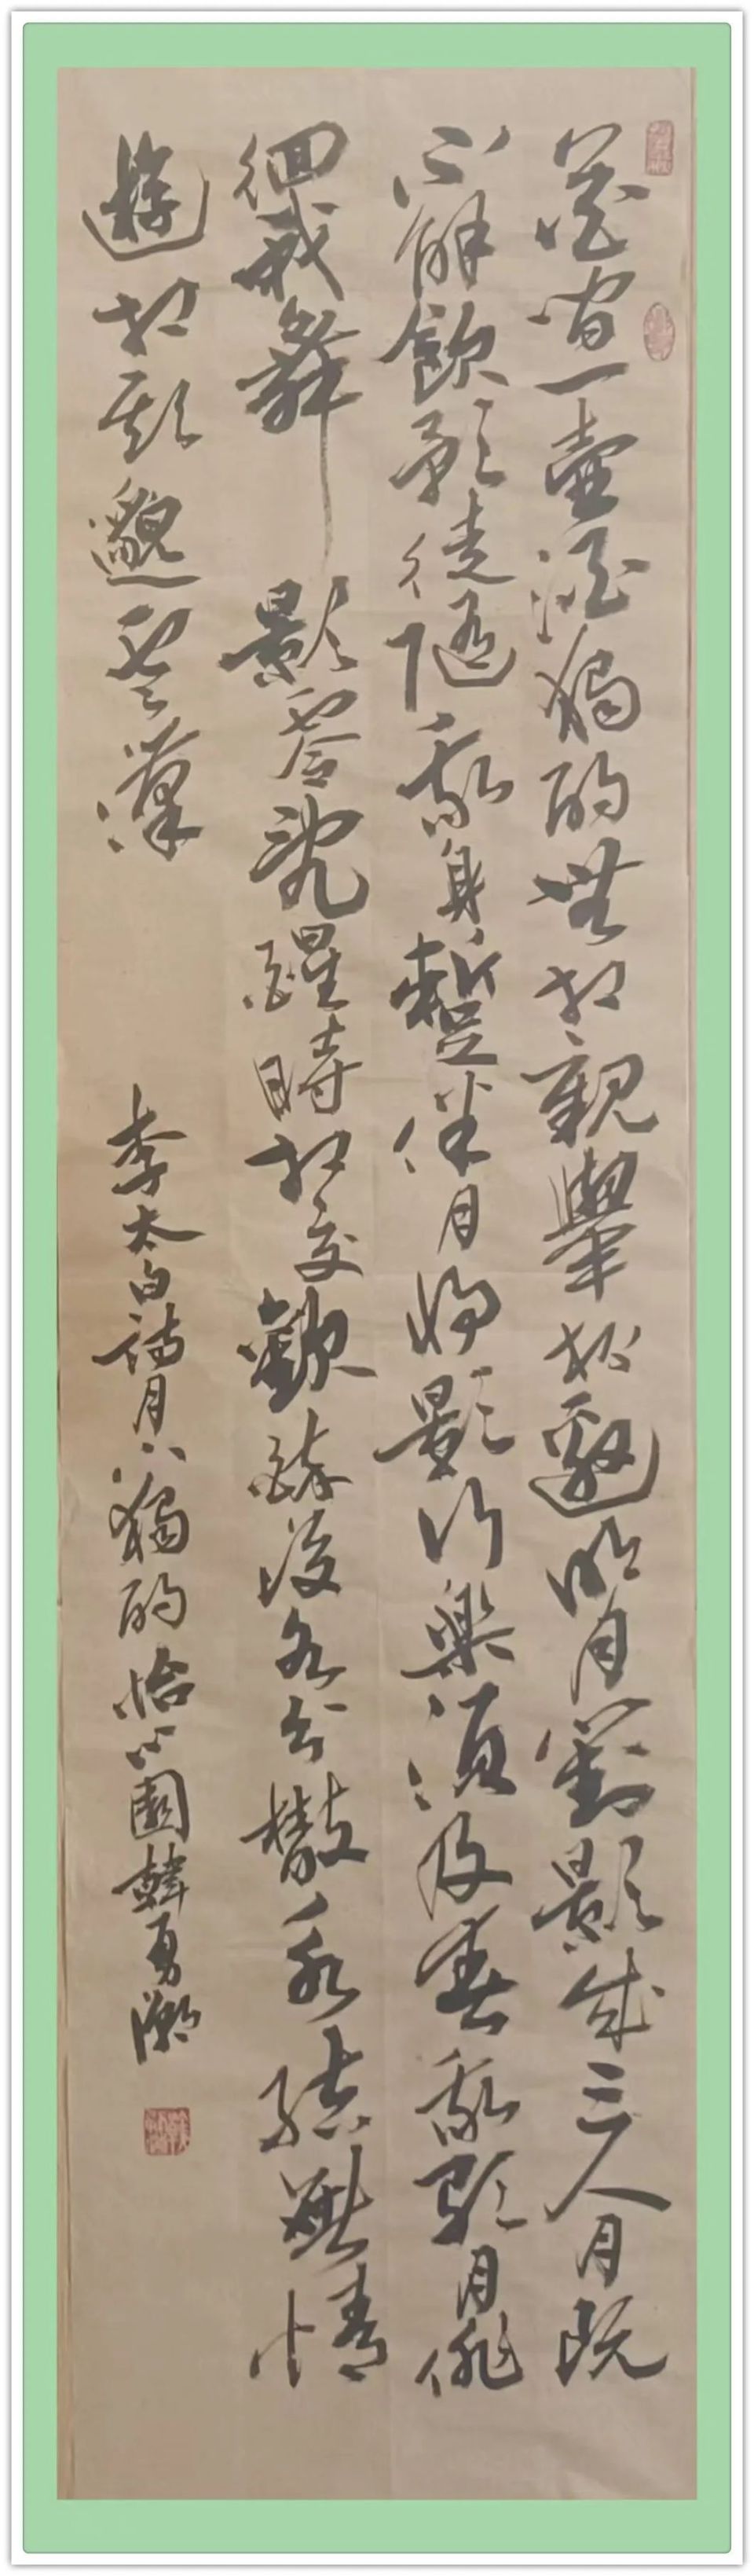 花間一壺酒獨酌無相親舉杯邀明月對影成三人月既
不解飲影徒隨我身暫伴月將影行樂須及春我歌月徘
徊我舞影零亂醒時相交歡醉後各分散永結無情
遊相期邈雲漢
李太白詩月下獨酌怡心園韓勇